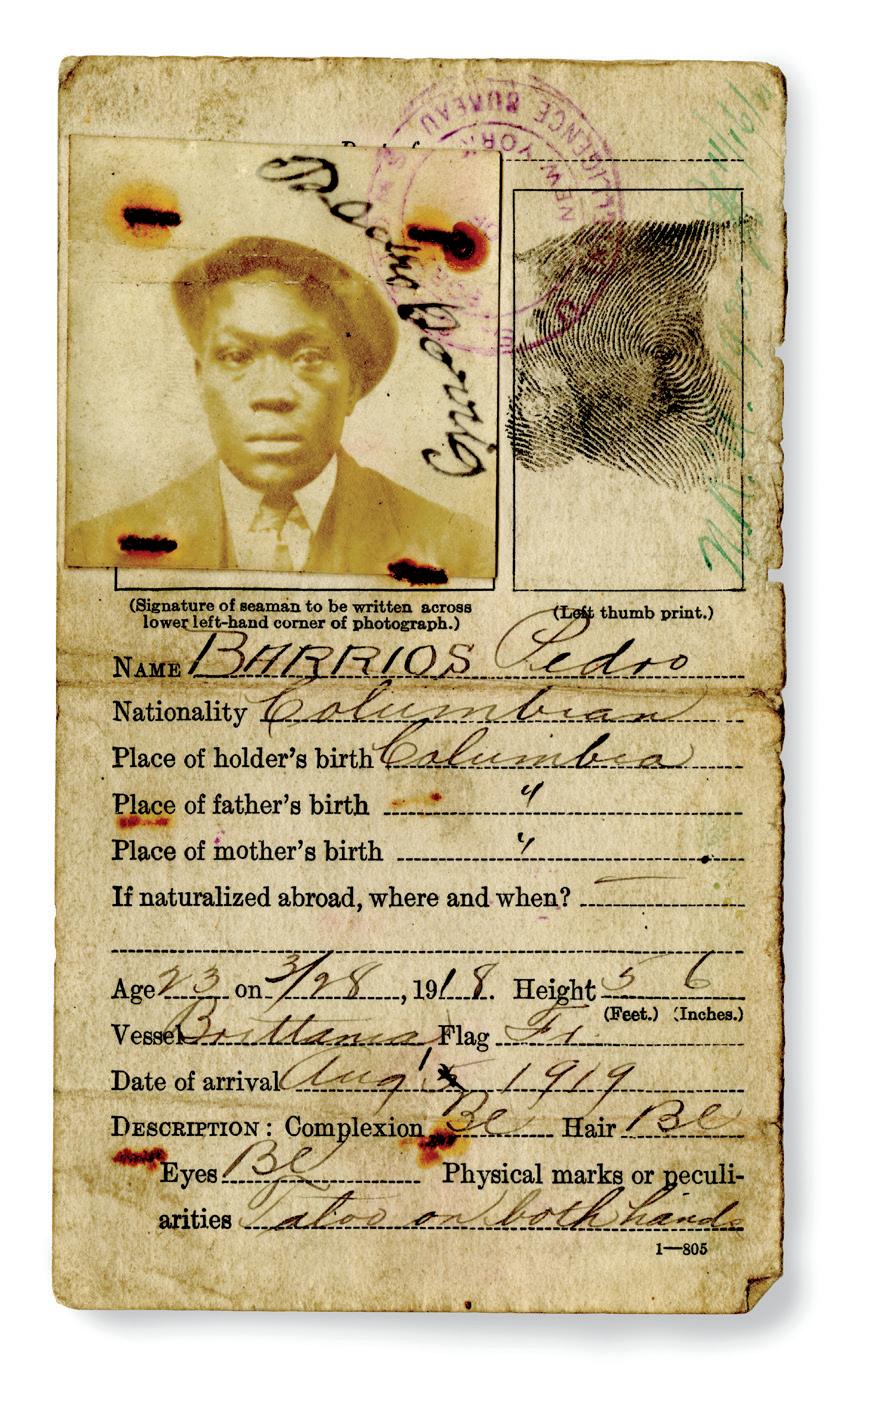 NEW YORK
Pedro Barrios
(Signature of seaman to be written across
lower left-hand corner of photograph.)
(Left thumb print.)
NAME BARRIOS Pedro
Nationality Columbian
Place of holder's birth Columbia
Place of father's birth "
Place of mother's birth "
If naturalized abroad, where and when? —
Age 23 on 3/28, 1918. Height 5 6
(Feet.) (Inches.)
Vessel Brittania Flag Fr.
Date of arrival Aug 1919
DESCRIPTION: Complexion Bl Hair Bl
Eyes Bl Physical marks or peculi-
arities Tatoo on both hands
1—805